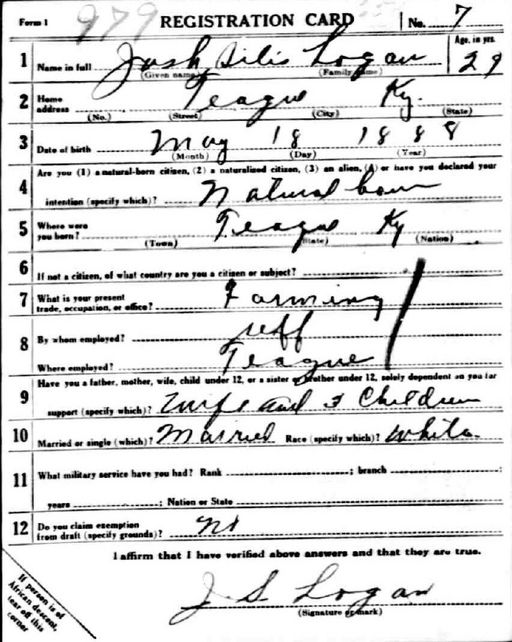 Form 1 979 REGISTRATION CARD No. 7
1 Name in full Josh Silis Logan Age, in yrs. 29
(Given name) (Family name)
2 Home address Teague Ky.
(No.) (Street) (City) (State)
3 Date of birth May 18 1888
(Month) (Day) (Year)
4 Are you (1) a natural-born citizen, (2) a naturalized citizen, (3) an alien, (4) or have you declared your
intention (specify which)? Natural born
5 Where were you born? Teague Ky
(Town) (State) (Nation)
6 If not a citizen, of what country are you a citizen or subject?
7 What is your present trade, occupation, or office? Farming
8 By whom employed? Jeff
Where employed? Teague
9 Have you a father, mother, wife, child under 12, or a sister or brother under 12, solely dependent on you for
support (specify which)? Wife and 3 Children
10 Married or single (which)? Married Race (specify which)? White
11 What military service have you had? Rank ; branch ;
years ; Nation or State
12 Do you claim exemption from draft (specify grounds)? No
I affirm that I have verified above answers and that they are true.
J. S Logan
(Signature or mark)
If person is of
African descent,
tear off this
corner